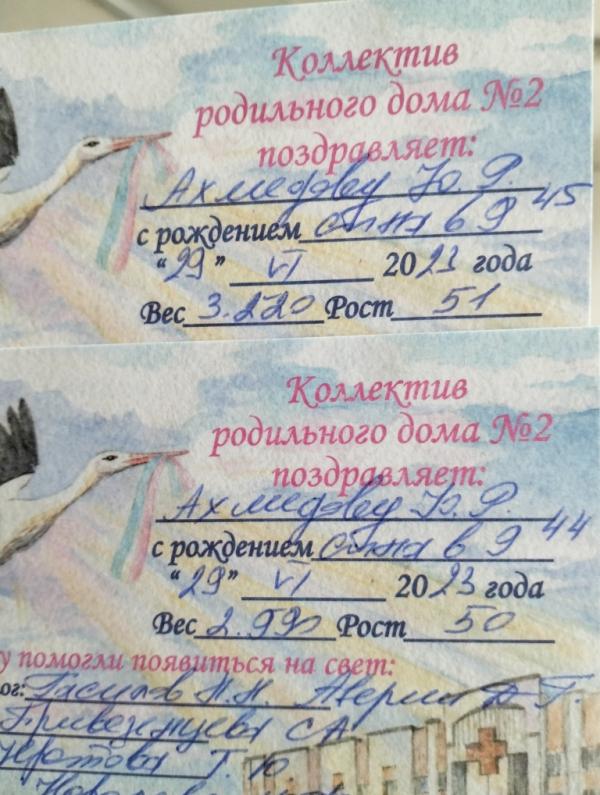 Коллектив
родильного дома №2
поздравляет:
Ахмедову Ю. Р.
с рождением сына в 9 45
"29" VI 2023 года
Вес 3.220 Рост 51
Коллектив
родильного дома №2
поздравляет:
Ахмедову Ю. Р.
с рождением сына в 9 44
"29" VI 2023 года
Вес 2.990 Рост 50
у помогли появиться на свет:
ог:
С А
Т. Ю